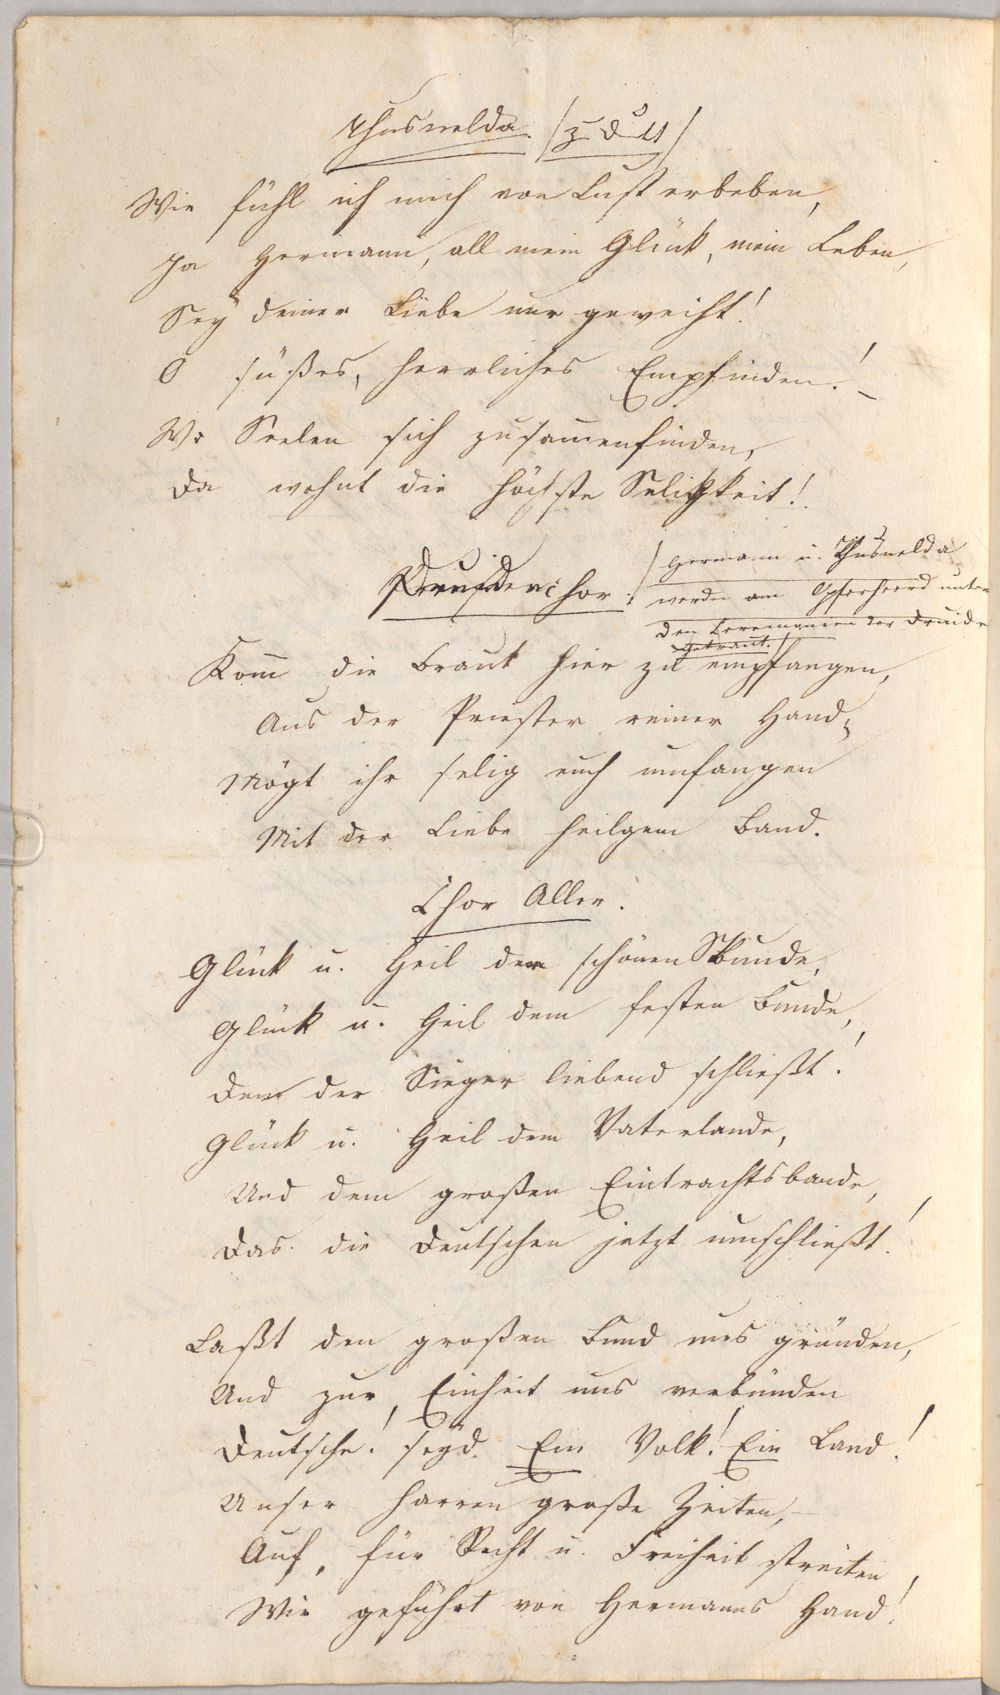 Thusnelda. /z. Duett/
Wie fühl ich mich von Lust erbeben,
Ja Hermann, all mein Glück, mein Leben,
Sey deiner Liebe nur geweiht!
O süßes, herrliches Empfinden! –
Wo Seelen sich zusammenfinden,
Da wohnt die höchste Seligkeit!
Druidenchor. /Hermann u. Thusnelda
werden am Opferheerd unter
den Ceremonien der Druiden
getraut./
Komm die Braut hier zu empfangen,
Aus der Priester reiner Hand,
Mögt ihr selig euch umfangen
Mit der Liebe heilgem Band.
Chor Aller.
Glück u. Heil der schönen Stunde,
Glück u. Heil dem festen Bunde,
Den der Sieger liebend schließt!
Glück u. Heil dem Vaterlande,
Und dem großen Eintrachtsbande,
Das die Deutschen jetzt umschließt!
Laßt den großen Bund uns gründen,
Und zur Einheit uns verbünden
Deutsche! seyd Ein Volk! Ein Land!
Unser harren große Zeiten, –
Auf, für Recht u. Freiheit streiten
Wir geführt von Hermanns Hand!